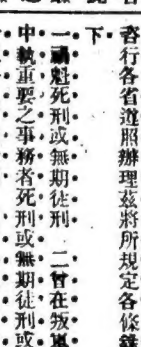 咨行各省遵照辦理茲將所規定各條錄
下
一禍魁死刑或無期徒刑 二曾在叛軍
中執重要之事務者死刑或無期徒刑或